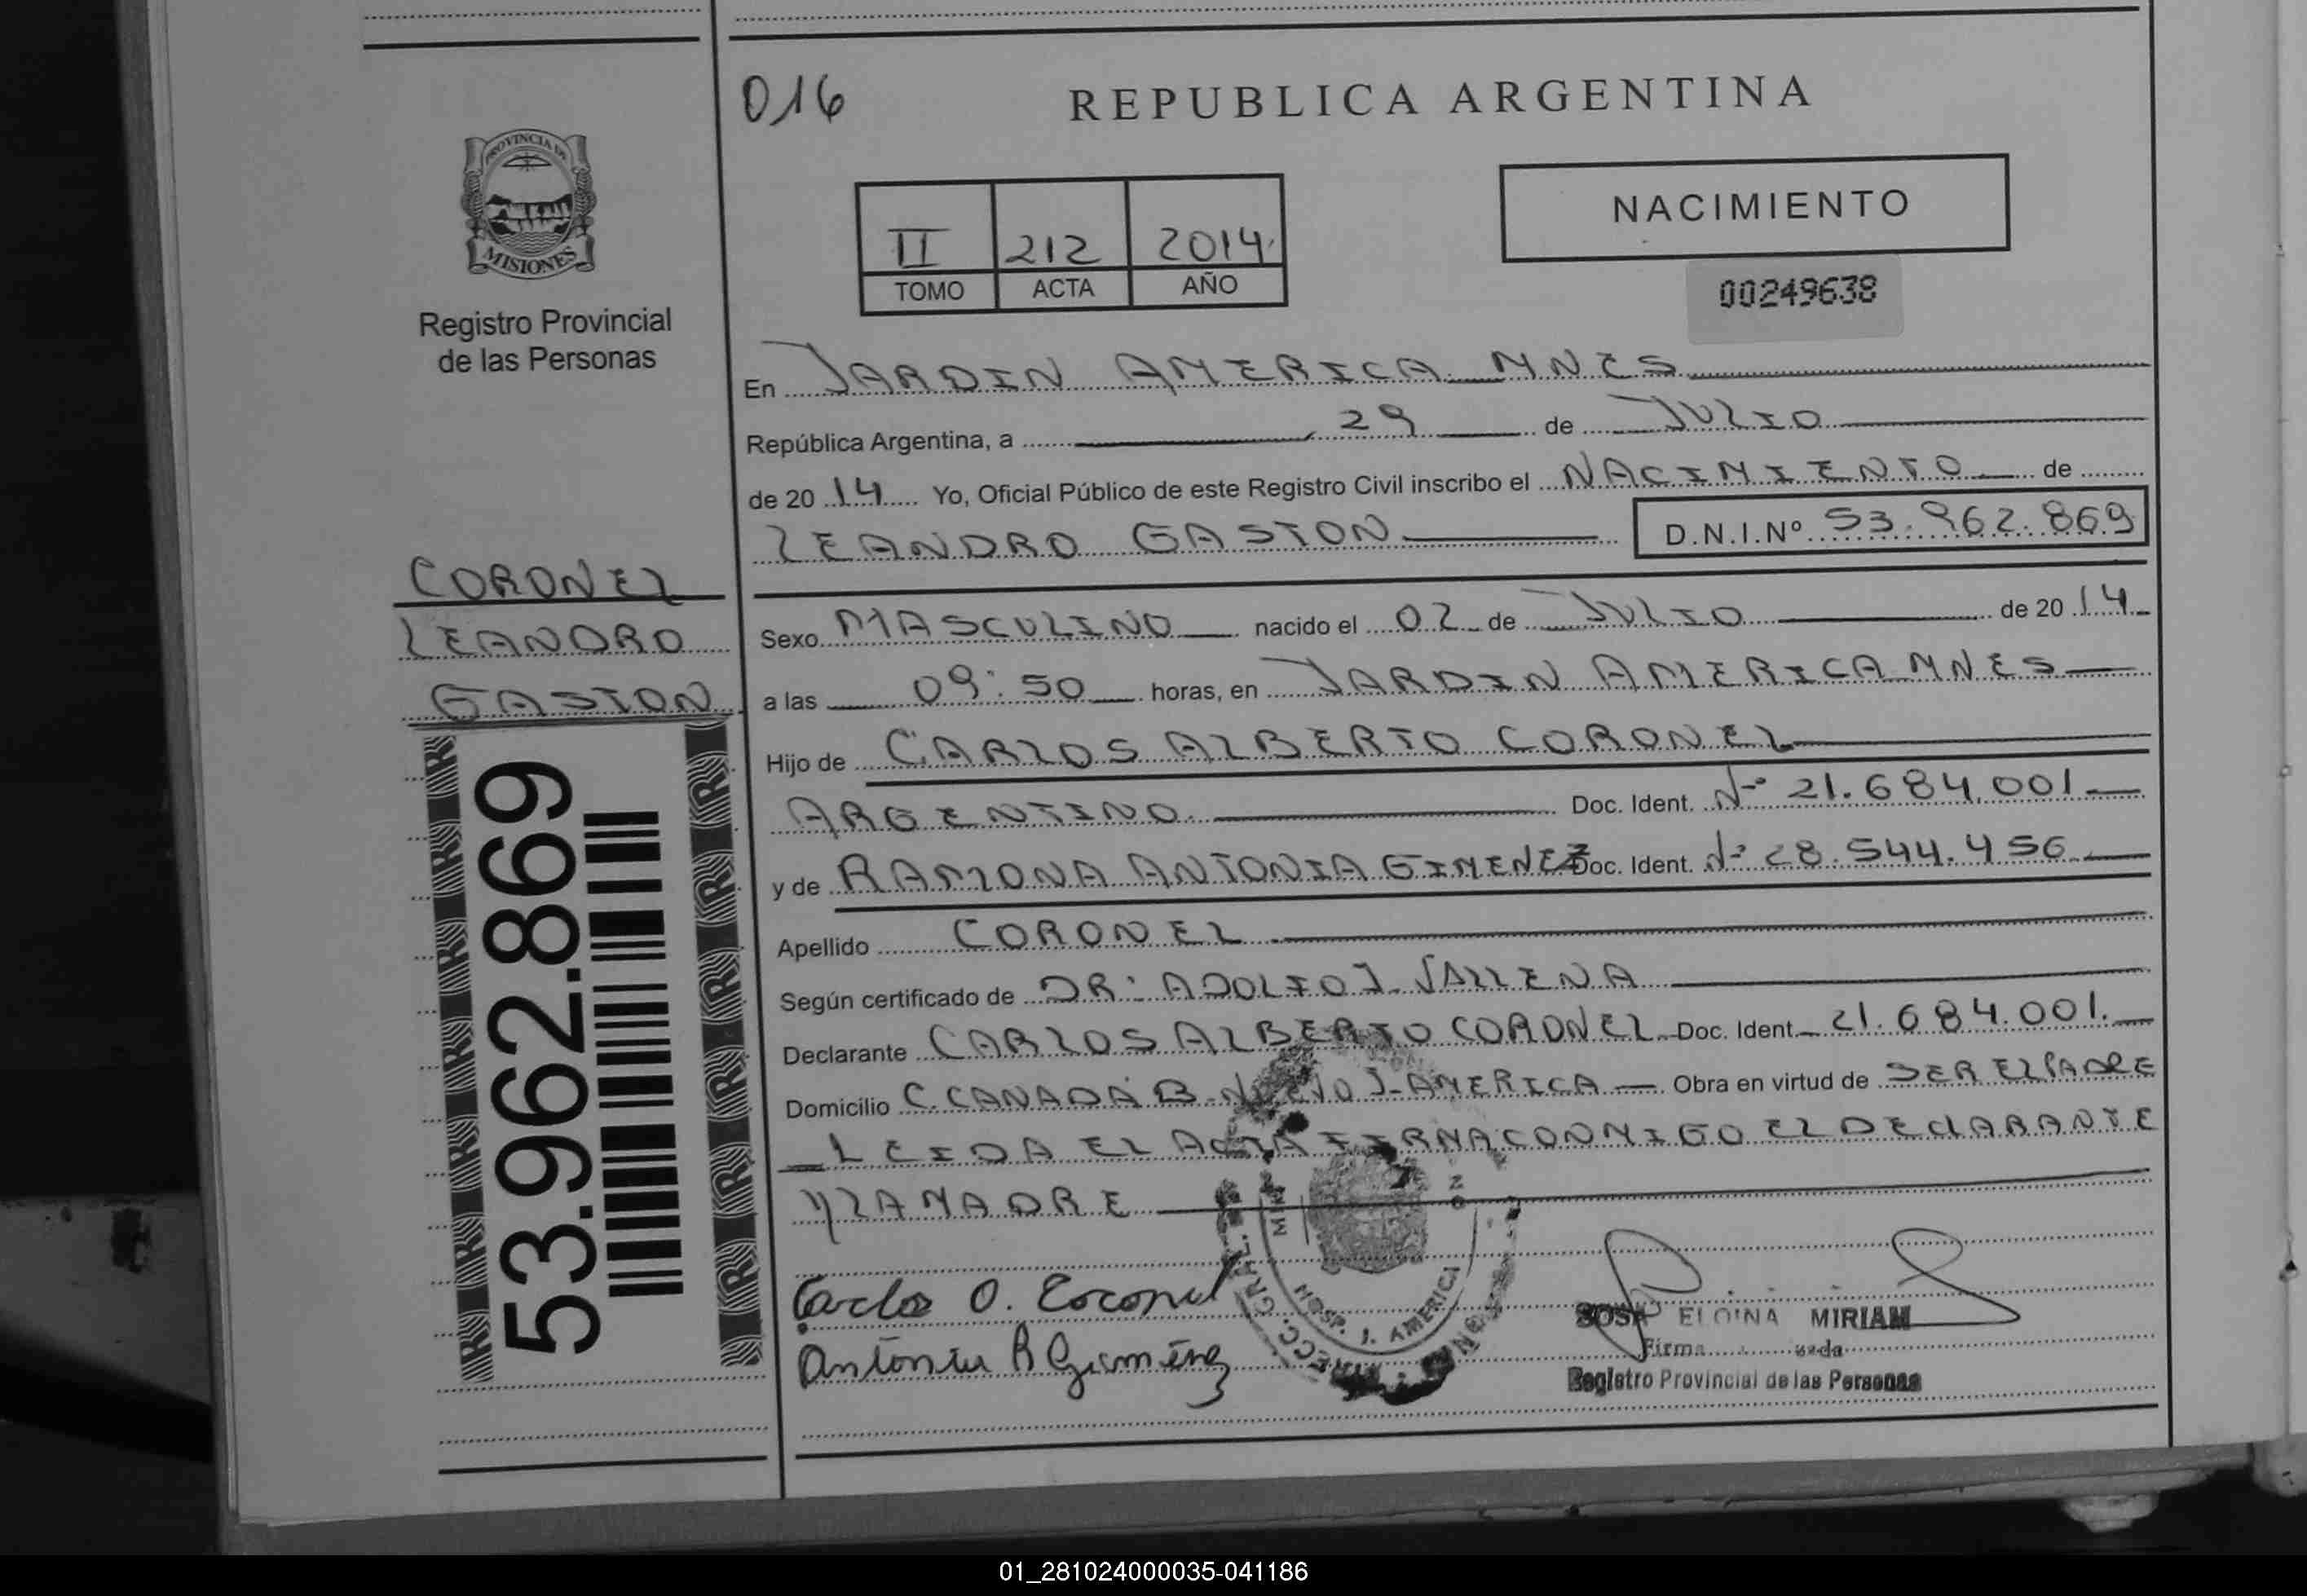 016
REPUBLICA ARGENTINA
PROVINCIA DE
MISIONES
Registro Provincial
de las Personas
II 212 2014
TOMO ACTA AÑO
NACIMIENTO
00249638
En JARDIN AMERICA MNES
República Argentina, a 29 de JULIO
de 20 14 Yo, Oficial Público de este Registro Civil inscribo el NACIMIENTO de
LEANDRO GASTON D.N.I.Nº 53.962.869
CORONEL
LEANDRO
GASTON
53.962.869
Sexo MASCULINO nacido el 02 de JULIO de 20 14
a las 09:50 horas, en JARDIN AMERICA MNES
Hijo de CARLOS ALBERTO CORONEL
ARGENTINO Doc. Ident. Nº 21.684.001
y de RAMONA ANTONIA GIMENEZ Doc. Ident. Nº 28.544.456
Apellido CORONEL
Según certificado de DR: ADOLFO J. VALLENA
Declarante CARLOS ALBERTO CORONEL Doc. Ident. 21.684.001.
Domicilio C. CANADA B- NUEVO J- AMERICA Obra en virtud de SER EL PADRE
LEIDA EL ACTA FIRMA CONMIGO EL DECLARANTE
Y LA MADRE
Carlos A. Coronel
Antonia R Gimenez
HOSP. J. AMERICA
SOSA ELOINA MIRIAM
Firma
Registro Provincial de las Personas
01_281024000035-041186